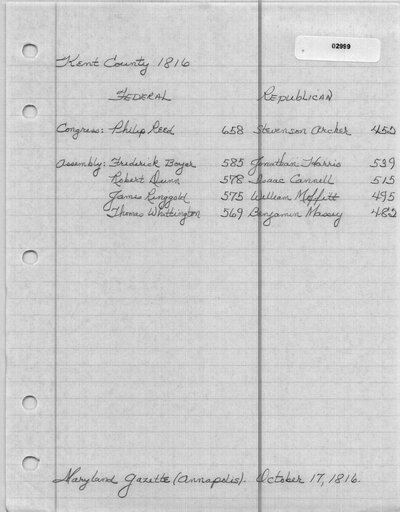 02999
Kent County 1816
FEDERAL REPUBLICAN
Congress: Philip Reed 658 Stevenson Archer 455
Assembly: Frederick Boyer 585 Jonathan Harris 539
Robert Dunn 578 Isaac Cannell 515
James Ringgold 575 William Moffitt 495
Thomas Whittington 569 Benjamin Massey 482
Maryland Gazette (Annapolis). October 17, 1816.